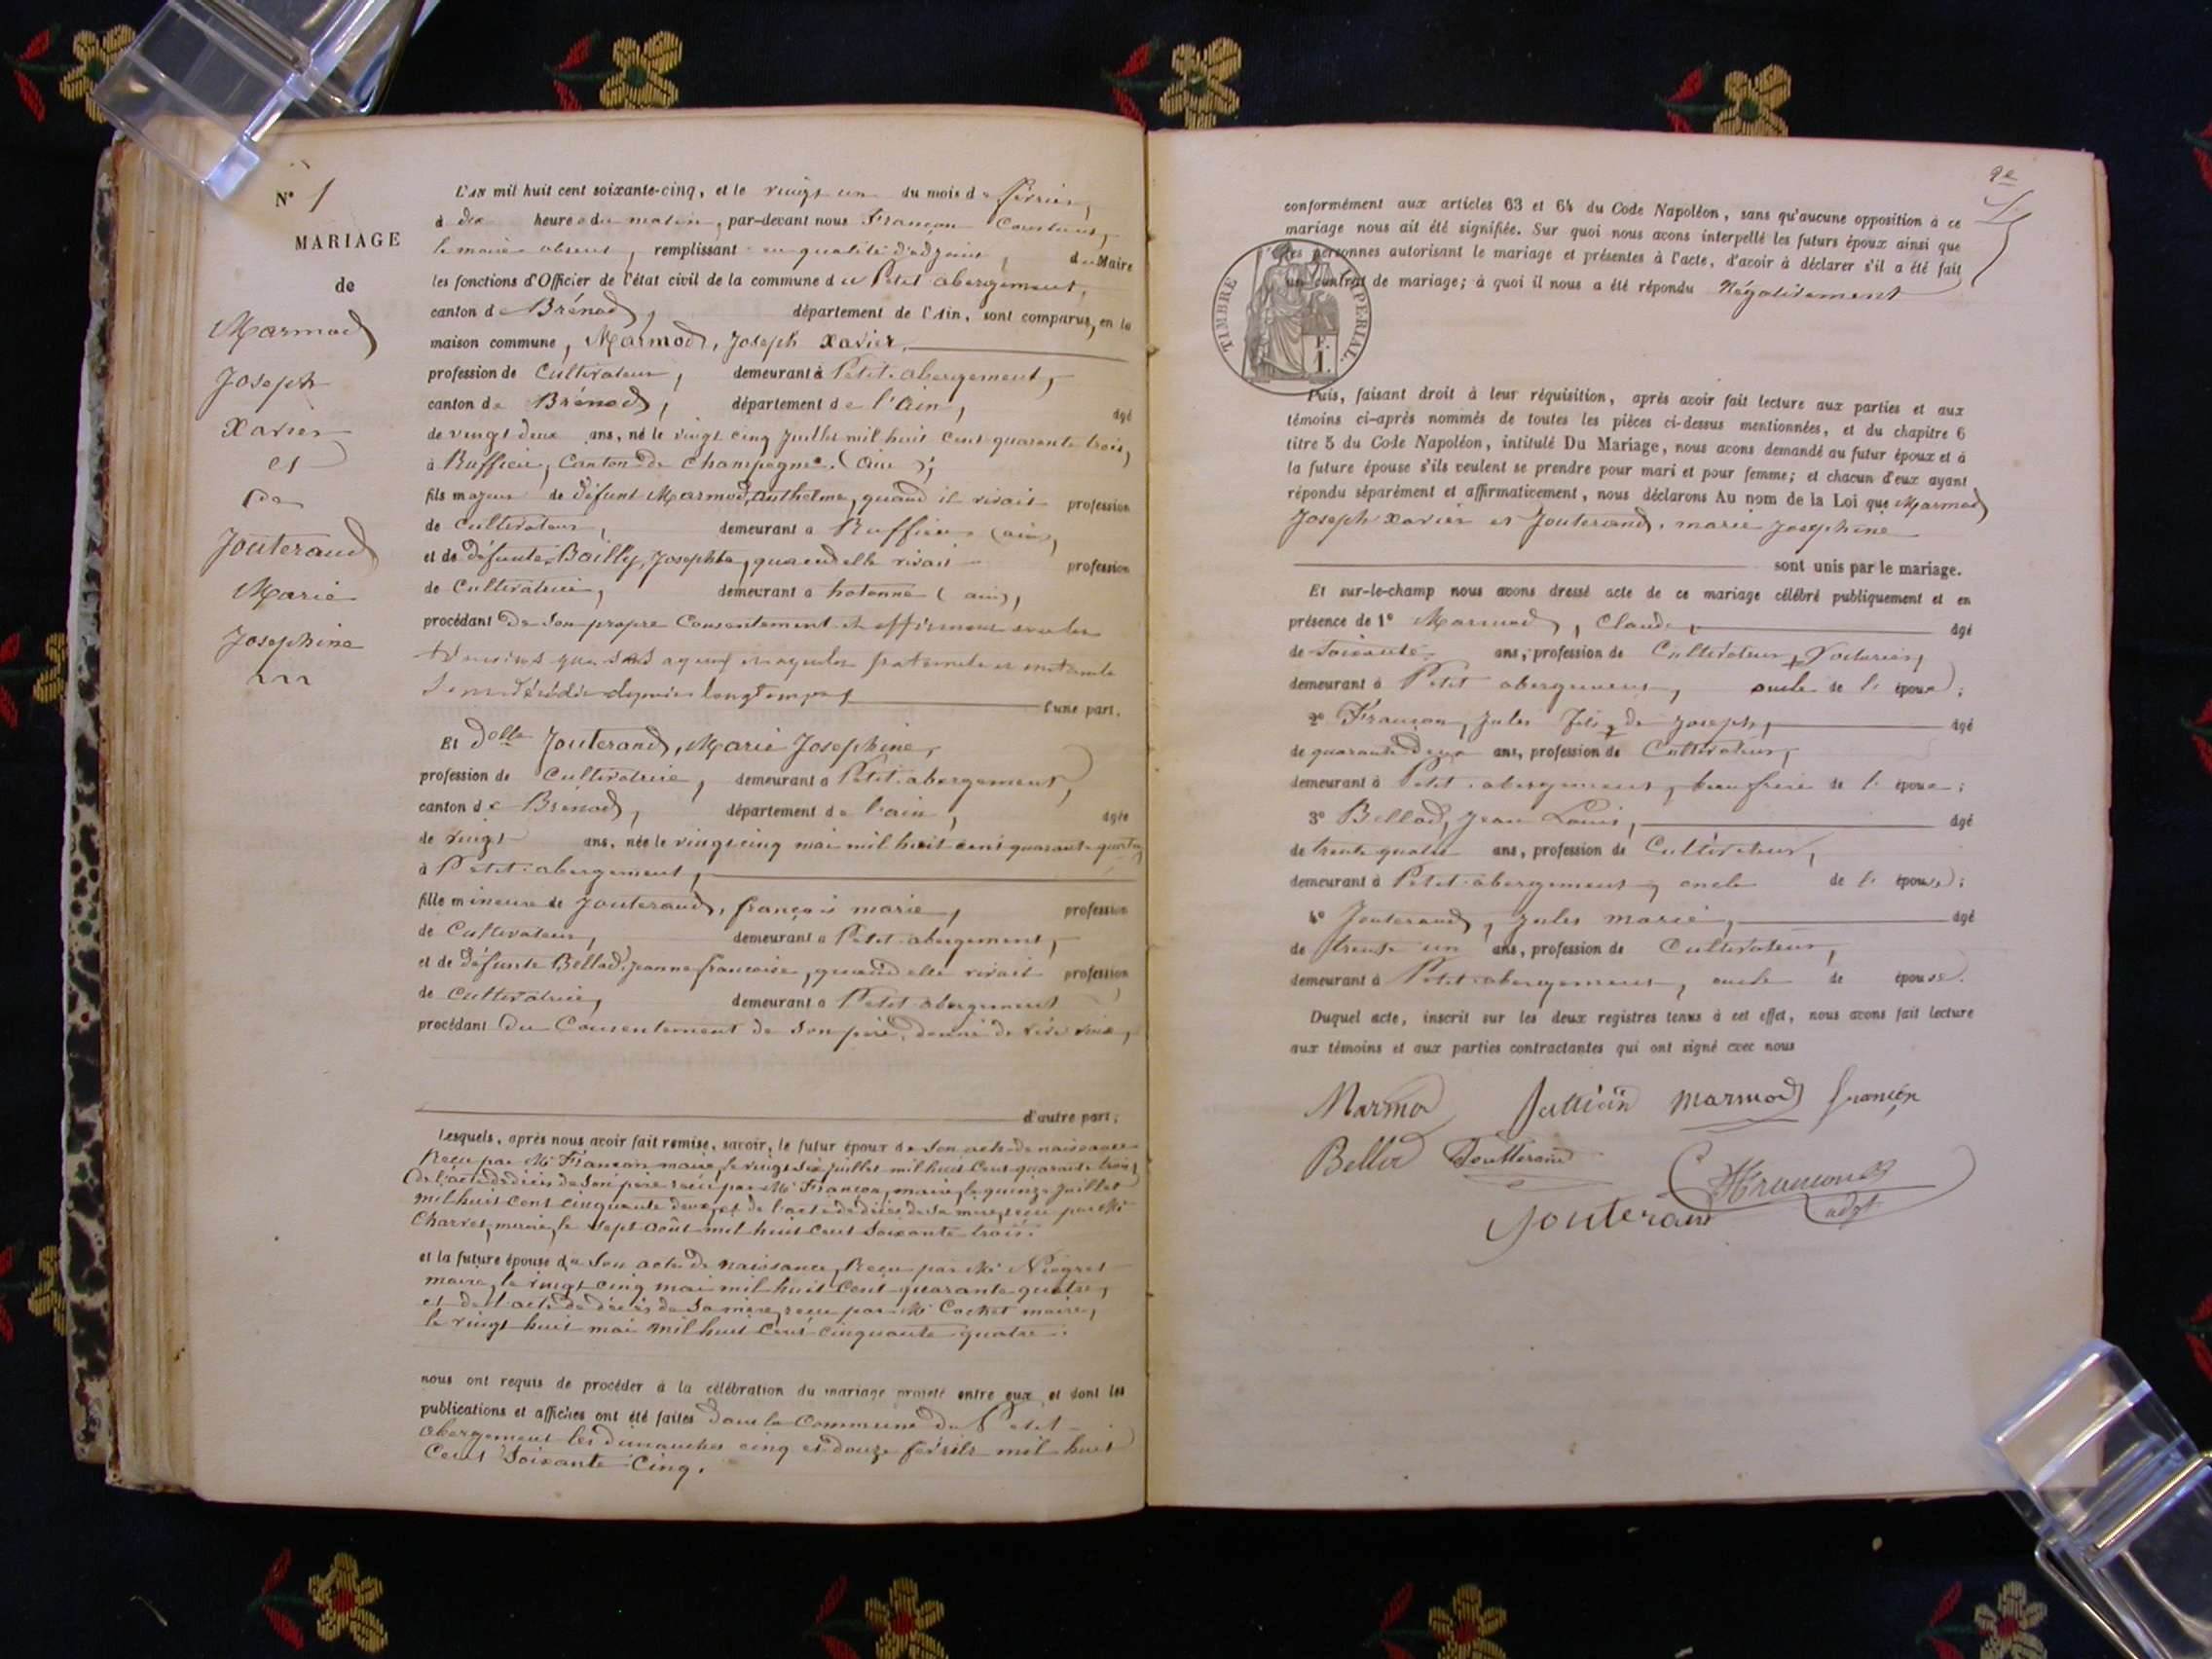 N° 1
MARIAGE
de
Marmod
Joseph
Xavier
et
de
Jouterand
Marie
Josephine
L'AN mil huit cent soixante-cinq, et le vingt un du mois de février,
à dix heures du matin, par-devant nous Françon
le maire absent, remplissant en qualité d'adjoint, du Maire
les fonctions d'Officier de l'état civil de la commune du Petit abergement,
canton de Brénod, département de l'Ain, sont comparus, en la
maison commune, Marmod, Joseph Xavier,
profession de Cultivateur, demeurant à Petit-abergement,
canton de Brénod, département de l'ain, âgé
de vingt deux ans, né le vingt cinq Juillet mil huit cent quarante trois,
à Ruffieu, Canton de Champagne (ain);
fils majeur de défunt Marmod, Anthelme, quand il vivait profession
de Cultivateur, demeurant à Ruffieu (ain),
et de défunte Bailly, Josephte, quand elle vivait profession
de Cultivatrice, demeurant à hotonne (ain),
procédant de Son propre Consentement et affirmant
témoins que ses ayeux paternels et maternels
Sont décédés depuis longtemps, d'une part.
Et Delle Jouterand, Marie Josephine,
profession de Cultivatrice, demeurant à Petit-abergement,
canton de Brénod, département de l'ain, âgée
de vingt ans, née le vingt cinq mai mil huit cent quarante quatre,
à Petit-abergement,
fille mineure de Jouterand, françois marie, profession
de Cultivateur, demeurant à Petit-abergement,
et de défunte Bellod, Jeanne françoise, quand elle vivait profession
de Cultivatrice, demeurant à Petit abergement
procédant du Consentement de Son père, donné de vive voix,
d'autre part;
Lesquels, après nous avoir fait remise, savoir, le futur époux de Son acte de naissance
Reçu par Mr Françon maire, le vingt six juillet mil huit cent quarante trois,
de l'acte de décès de Son père reçu par Mr Françon, maire, le quinze Juillet
mil huit cent cinquante deux, et de l'acte de décès de Sa mère, reçu par Mr
Charvet, maire, le sept août mil huit cent Soixante trois.
et la future épouse de Son acte de naissance, Reçu par Mr
maire, le vingt cinq mai mil huit cent quarante quatre,
et de l'acte de décès de Sa mère, reçu par Mr Cochet maire,
le vingt huit mai mil huit cent cinquante quatre.
nous ont requis de procéder à la célébration du mariage projeté entre eux, et dont les
publications et affiches ont été faites dans la Commune du Petit-
abergement les dimanches cinq et douze février mil huit
Cent Soixante Cinq.
2e
conformément aux articles 63 et 64 du Code Napoléon, sans qu'aucune opposition à ce
mariage nous ait été signifiée. Sur quoi nous avons interpellé les futurs époux ainsi que
les personnes autorisant le mariage et présentes à l'acte, d'avoir à déclarer s'il a été fait
un contrat de mariage; à quoi il nous a été répondu Négativement
TIMBRE IMPERIAL.
F.
1.
Puis, faisant droit à leur réquisition, après avoir fait lecture aux parties et aux
témoins ci-après nommés de toutes les pièces ci-dessus mentionnées, et du chapitre 6
titre 5 du Code Napoléon, intitulé Du Mariage, nous avons demandé au futur époux et à
la future épouse s'ils veulent se prendre pour mari et pour femme; et chacun d'eux ayant
répondu séparément et affirmativement, nous déclarons Au nom de la Loi que Marmod
Joseph Xavier et Jouterand, marie Josephine
sont unis par le mariage.
Et sur-le-champ nous avons dressé acte de ce mariage célébré publiquement et en
présence de 1° Marmod, Claude, âgé
de Soixante ans, profession de Cultivateur,
demeurant à Petit abergement, oncle de l' époux;
2° Françon, Jules fils de Joseph, âgé
de quarante deux ans, profession de Cultivateur,
demeurant à Petit-abergement, beau frère de l' époux;
3° Bellod, Jean Louis, âgé
de trente quatre ans, profession de Cultivateur,
demeurant à Petit-abergement, oncle de l' épouse;
4° Jouterand, Jules marie, âgé
de trente un ans, profession de Cultivateur,
demeurant à Petit-abergement, oncle de épouse.
Duquel acte, inscrit sur les deux registres tenus à cet effet, nous avons fait lecture
aux témoins et aux parties contractantes qui ont signé avec nous
Marmod marmod françon
Bellod Joutterand
Jouterand adjt